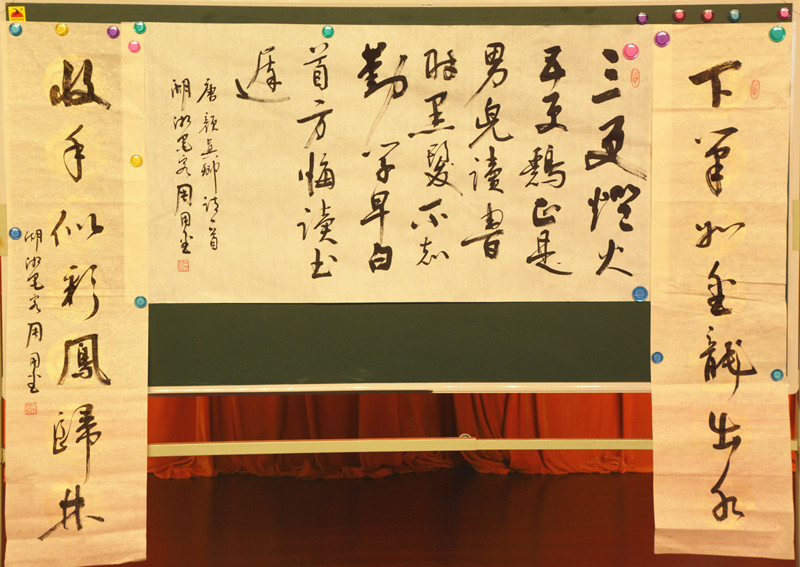 下筆如金龍出水
三更燈火
五更鷄正是
男兒讀書
時黑髮不知
勤学早白
首方悔讀书
遲
唐顏真卿詩一首
湖湘墨客周用
收手似彩鳳歸林
湖湘墨客周用